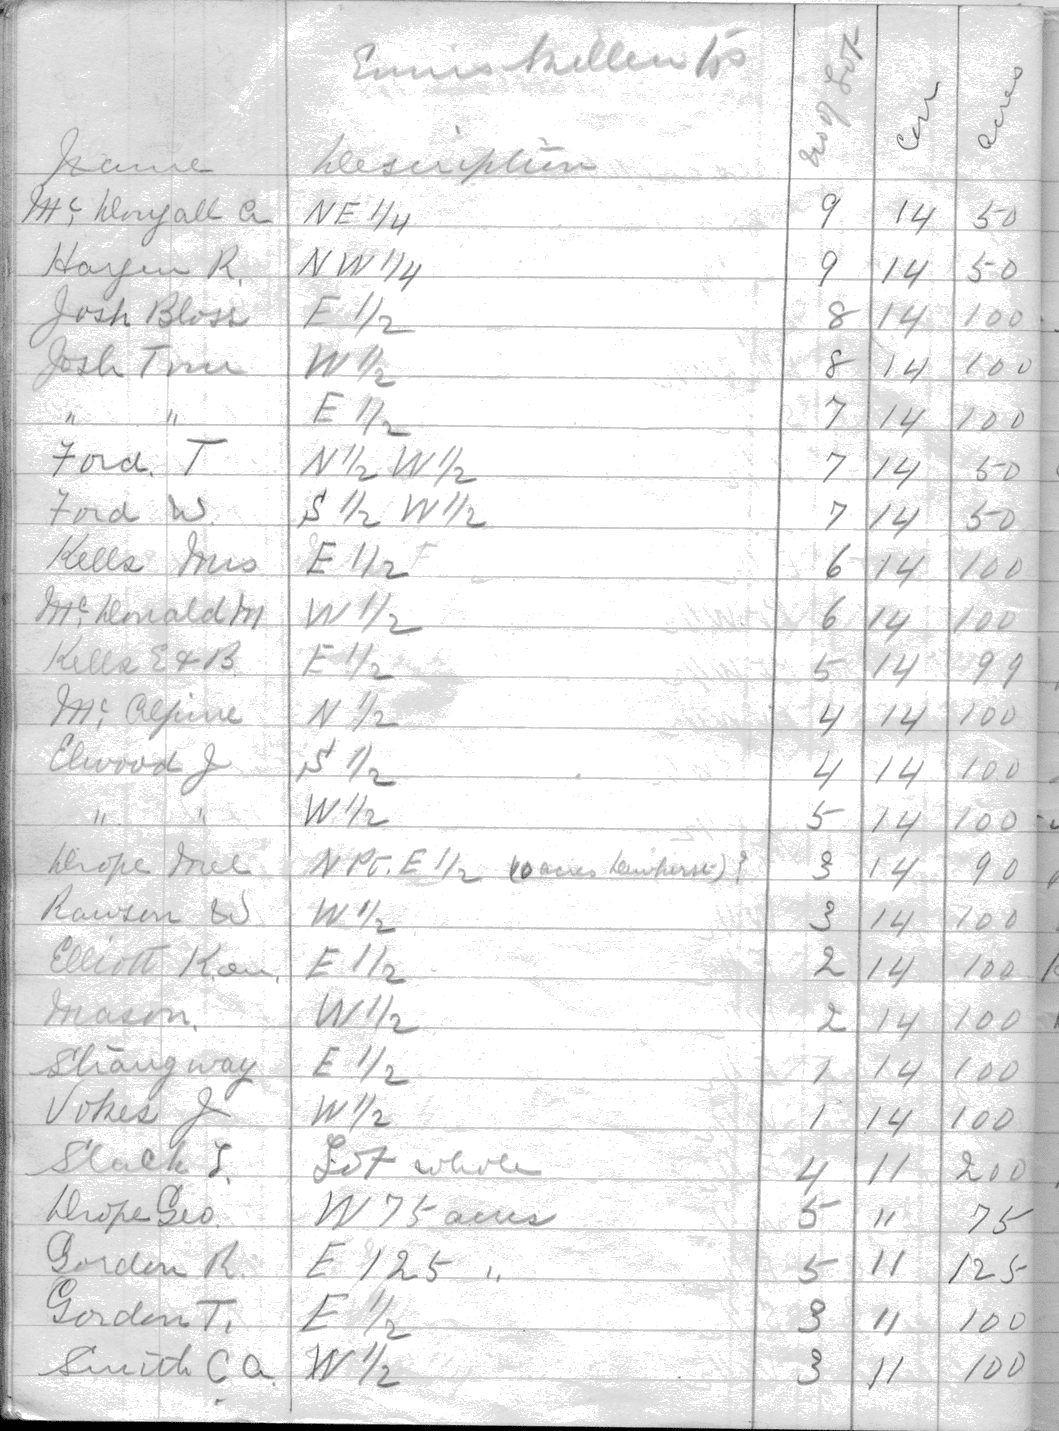 Enniskillen Tp
Name Description No of Lot Con Acres
Mc Dougall A NE 1/4 9 14 50
R. NW 1/4 9 14 50
Josh Bloss E 1/2 8 14 100
Josh W 1/2 8 14 100
" " E 1/2 7 14 100
Ford. T N 1/2 W 1/2 7 14 50
Ford W. S 1/2 W 1/2 7 14 50
Kells Mrs E 1/2 6 14 100
Mc Donald M W 1/2 6 14 100
Kells E & B. E 1/2 5 14 99
Mc Alpine N 1/2 4 14 100
Elwood J S 1/2 4 14 100
" " W 1/2 5 14 100
Drope Mel N Pt. E 1/2 (10 acres 3 14 90
Rawson W W 1/2 3 14 100
Elliott E 1/2 2 14 100
Mason. W 1/2 2 14 100
Strangway E 1/2 1 14 100
Vokes J W 1/2 1 14 100
Slack T. Lot whole 4 11 200
Drope Geo. W 75 acres 5 " 75
Gordon R. E 125 " 5 11 125
Gordon T. E 1/2 3 11 100
Smith C A. W 1/2 3 11 100